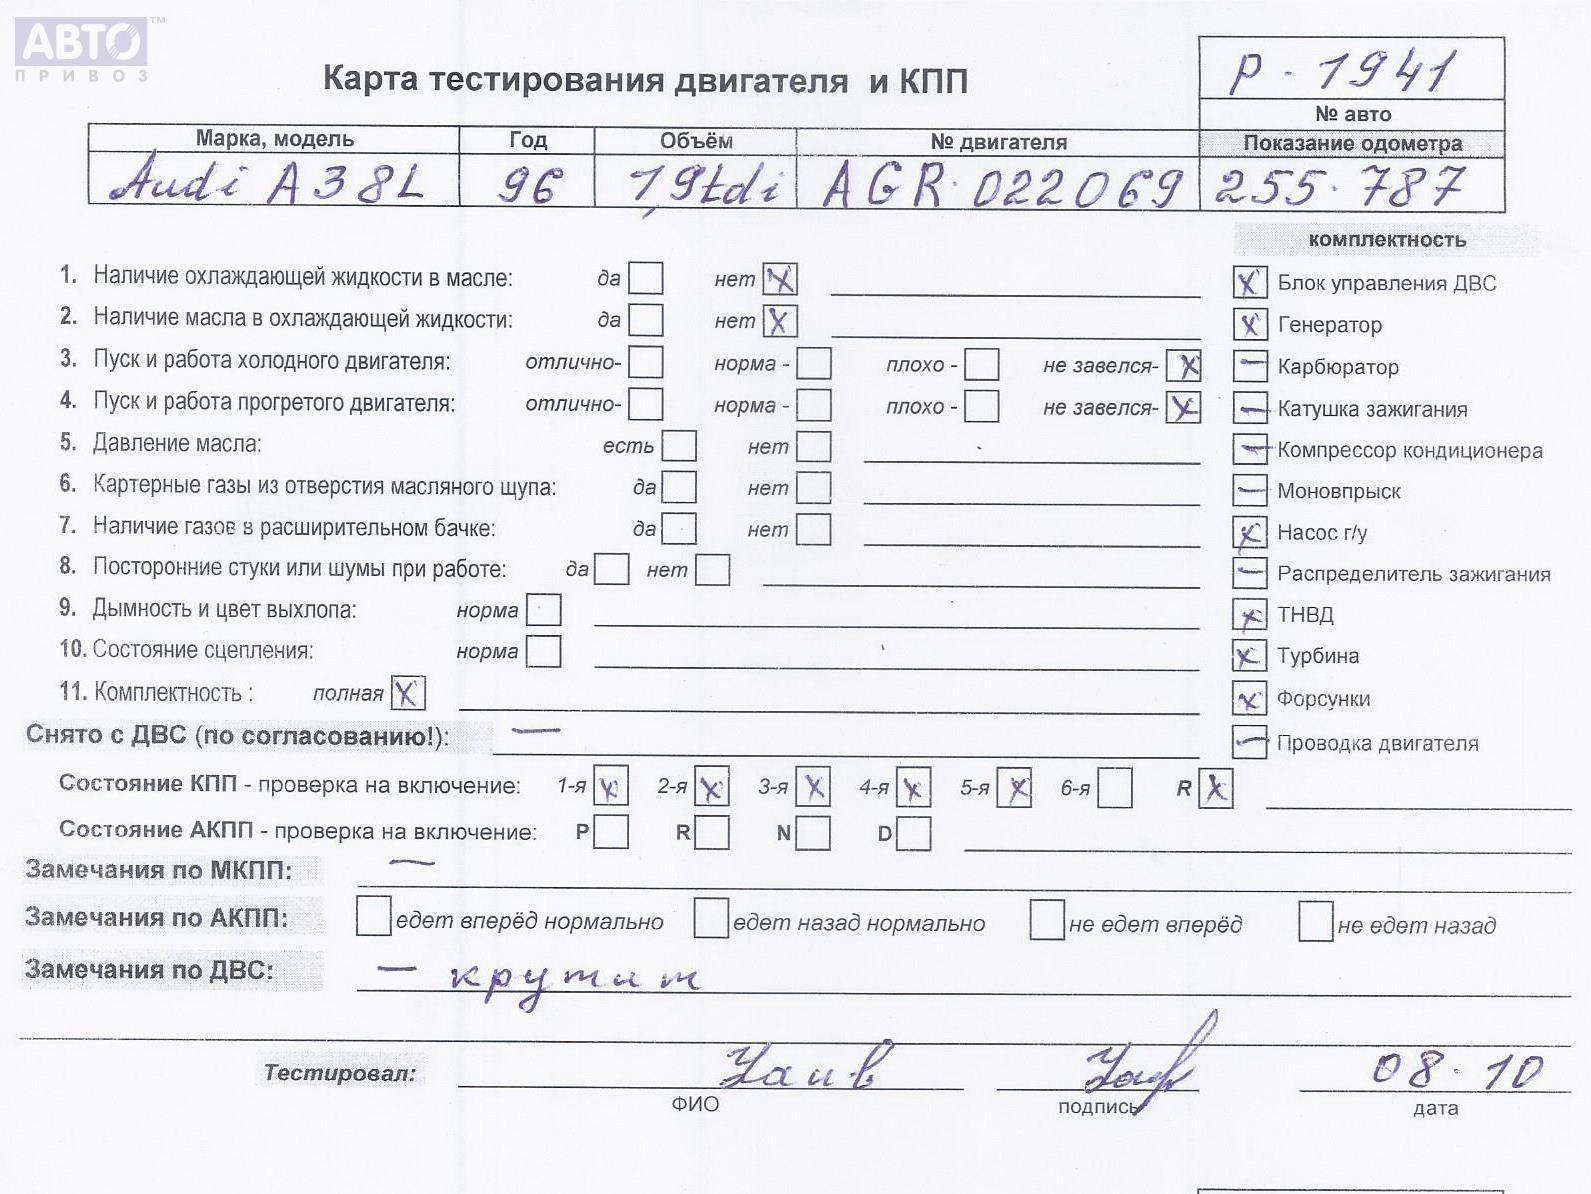 АВТО™
ПРИВОЗ
Карта тестирования двигателя и КПП
P - 1941
№ авто
Марка, модель Год Объём № двигателя Показание одометра
Audi A3 8L 96 1,9tdi AGR·022069 255·787
комплектность
1. Наличие охлаждающей жидкости в масле: да нет X
Блок управления ДВС X
2. Наличие масла в охлаждающей жидкости: да нет X
Генератор X
3. Пуск и работа холодного двигателя: отлично- норма - плохо - не завелся- X
— Карбюратор
4. Пуск и работа прогретого двигателя: отлично- норма - плохо - не завелся- X
— Катушка зажигания
5. Давление масла: есть нет
— Компрессор кондиционера
6. Картерные газы из отверстия масляного щупа: да нет
— Моновпрыск
7. Наличие газов в расширительном бачке: да нет
X Насос г/у
8. Посторонние стуки или шумы при работе: да нет
— Распределитель зажигания
9. Дымность и цвет выхлопа: норма
X ТНВД
10. Состояние сцепления: норма
X Турбина
11. Комплектность : полная X
X Форсунки
Снято с ДВС (по согласованию!): —
— Проводка двигателя
Состояние КПП - проверка на включение: 1-я X 2-я X 3-я X 4-я X 5-я X 6-я R X
Состояние АКПП - проверка на включение: P R N D
Замечания по МКПП: —
Замечания по АКПП: едет вперёд нормально едет назад нормально не едет вперёд не едет назад
Замечания по ДВС: — крутит
Тестировал: 08.10
ФИО подпись дата